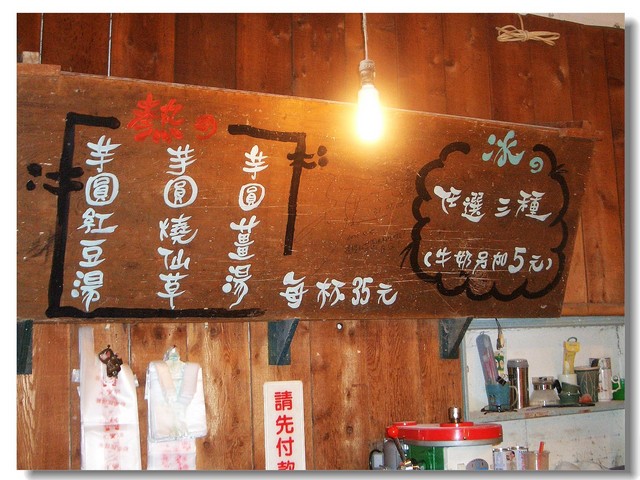 熱の
芋圓薑湯
芋圓燒仙草
芋圓紅豆湯
每杯35元
冰の
任選三種
(牛奶另加5元)
請先付款